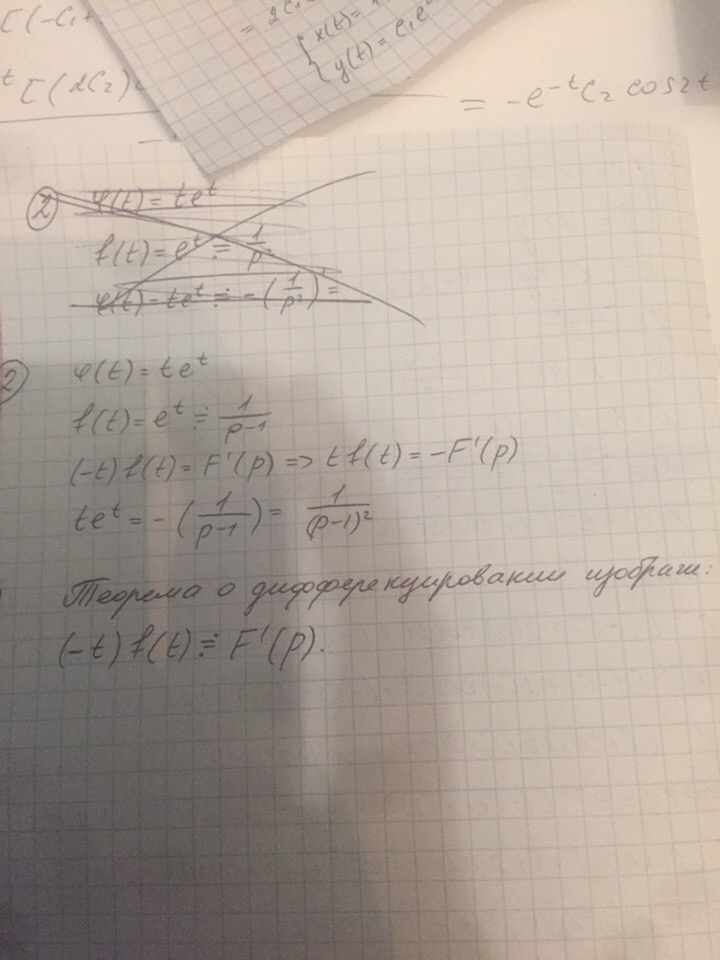 [(-C₁+
t [(2C₂)
= 2C₁
{ x(t)=
y(t) = C₁e
= -e⁻ᵗC₂ cos2t
② φ(t) = teᵗ
f(t) = eᵗ ≓ 1/p²
φ(t) - teᵗ ≓ -(1/p²)' =
② φ(t) = teᵗ
f(t) = eᵗ ≓ 1/(p-1)
(-t) f(t) = F'(p) => t f(t) = -F'(p)
teᵗ = -(1/(p-1)) = 1/(p-1)²
Теорема о дифференцировании изображ:
(-t) f(t) ≓ F'(p).